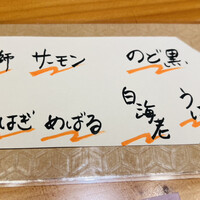 師 サーモン のど黒
はぎ めばる 白海老 う